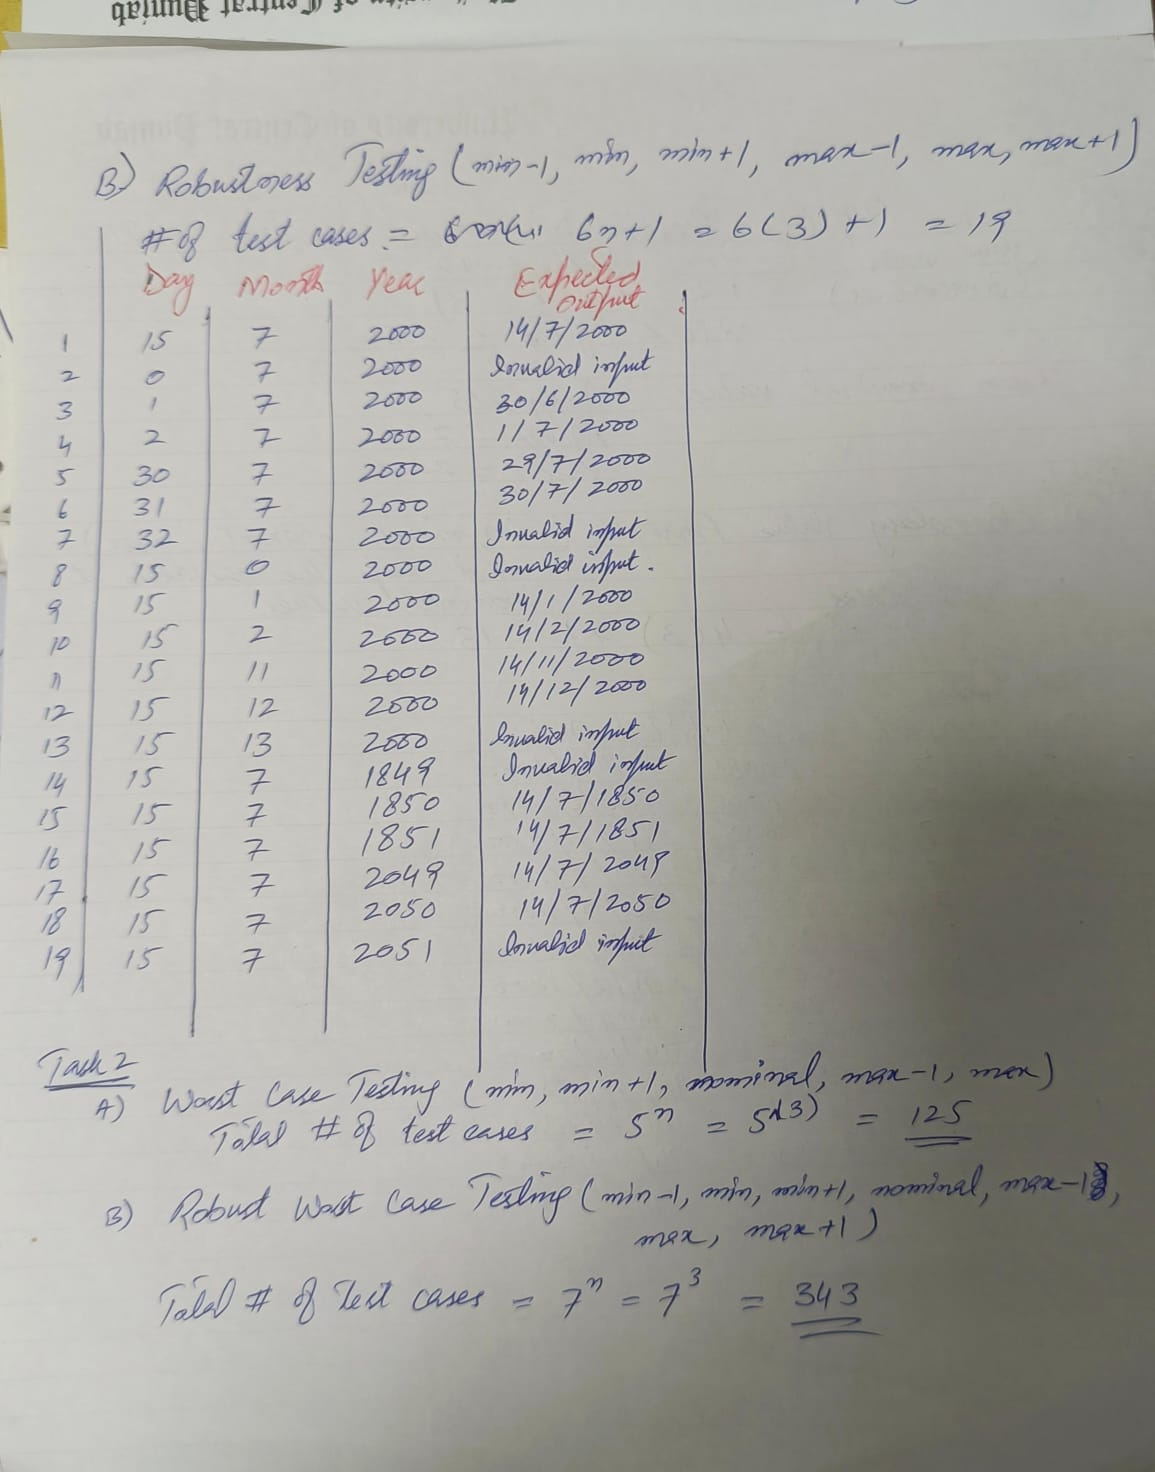 University of Central Punjab
B) Robustness Testing (min-1, min, min+1, max-1, max, max+1)
# of test cases = 6n+1 = 6(3)+1 = 19
Day Month Year Expected output
1 15 7 2000 14/7/2000
2 0 7 2000 Invalid input
3 1 7 2000 30/6/2000
4 2 7 2000 1/7/2000
5 30 7 2000 29/7/2000
6 31 7 2000 30/7/2000
7 32 7 2000 Invalid input
8 15 0 2000 Invalid input.
9 15 1 2000 14/1/2000
10 15 2 2000 14/2/2000
11 15 11 2000 14/11/2000
12 15 12 2000 14/12/2000
13 15 13 2000 Invalid input
14 15 7 1849 Invalid input
15 15 7 1850 14/7/1850
16 15 7 1851 14/7/1851
17 15 7 2049 14/7/2049
18 15 7 2050 14/7/2050
19 15 7 2051 Invalid input
Task 2
A) Worst Case Testing (min, min+1, nominal, max-1, max)
Total # of test cases = 5^n = 5^(3) = 125
B) Robust Worst Case Testing (min-1, min, min+1, nominal, max-1,
max, max+1)
Total # of Test cases = 7^n = 7^3 = 343